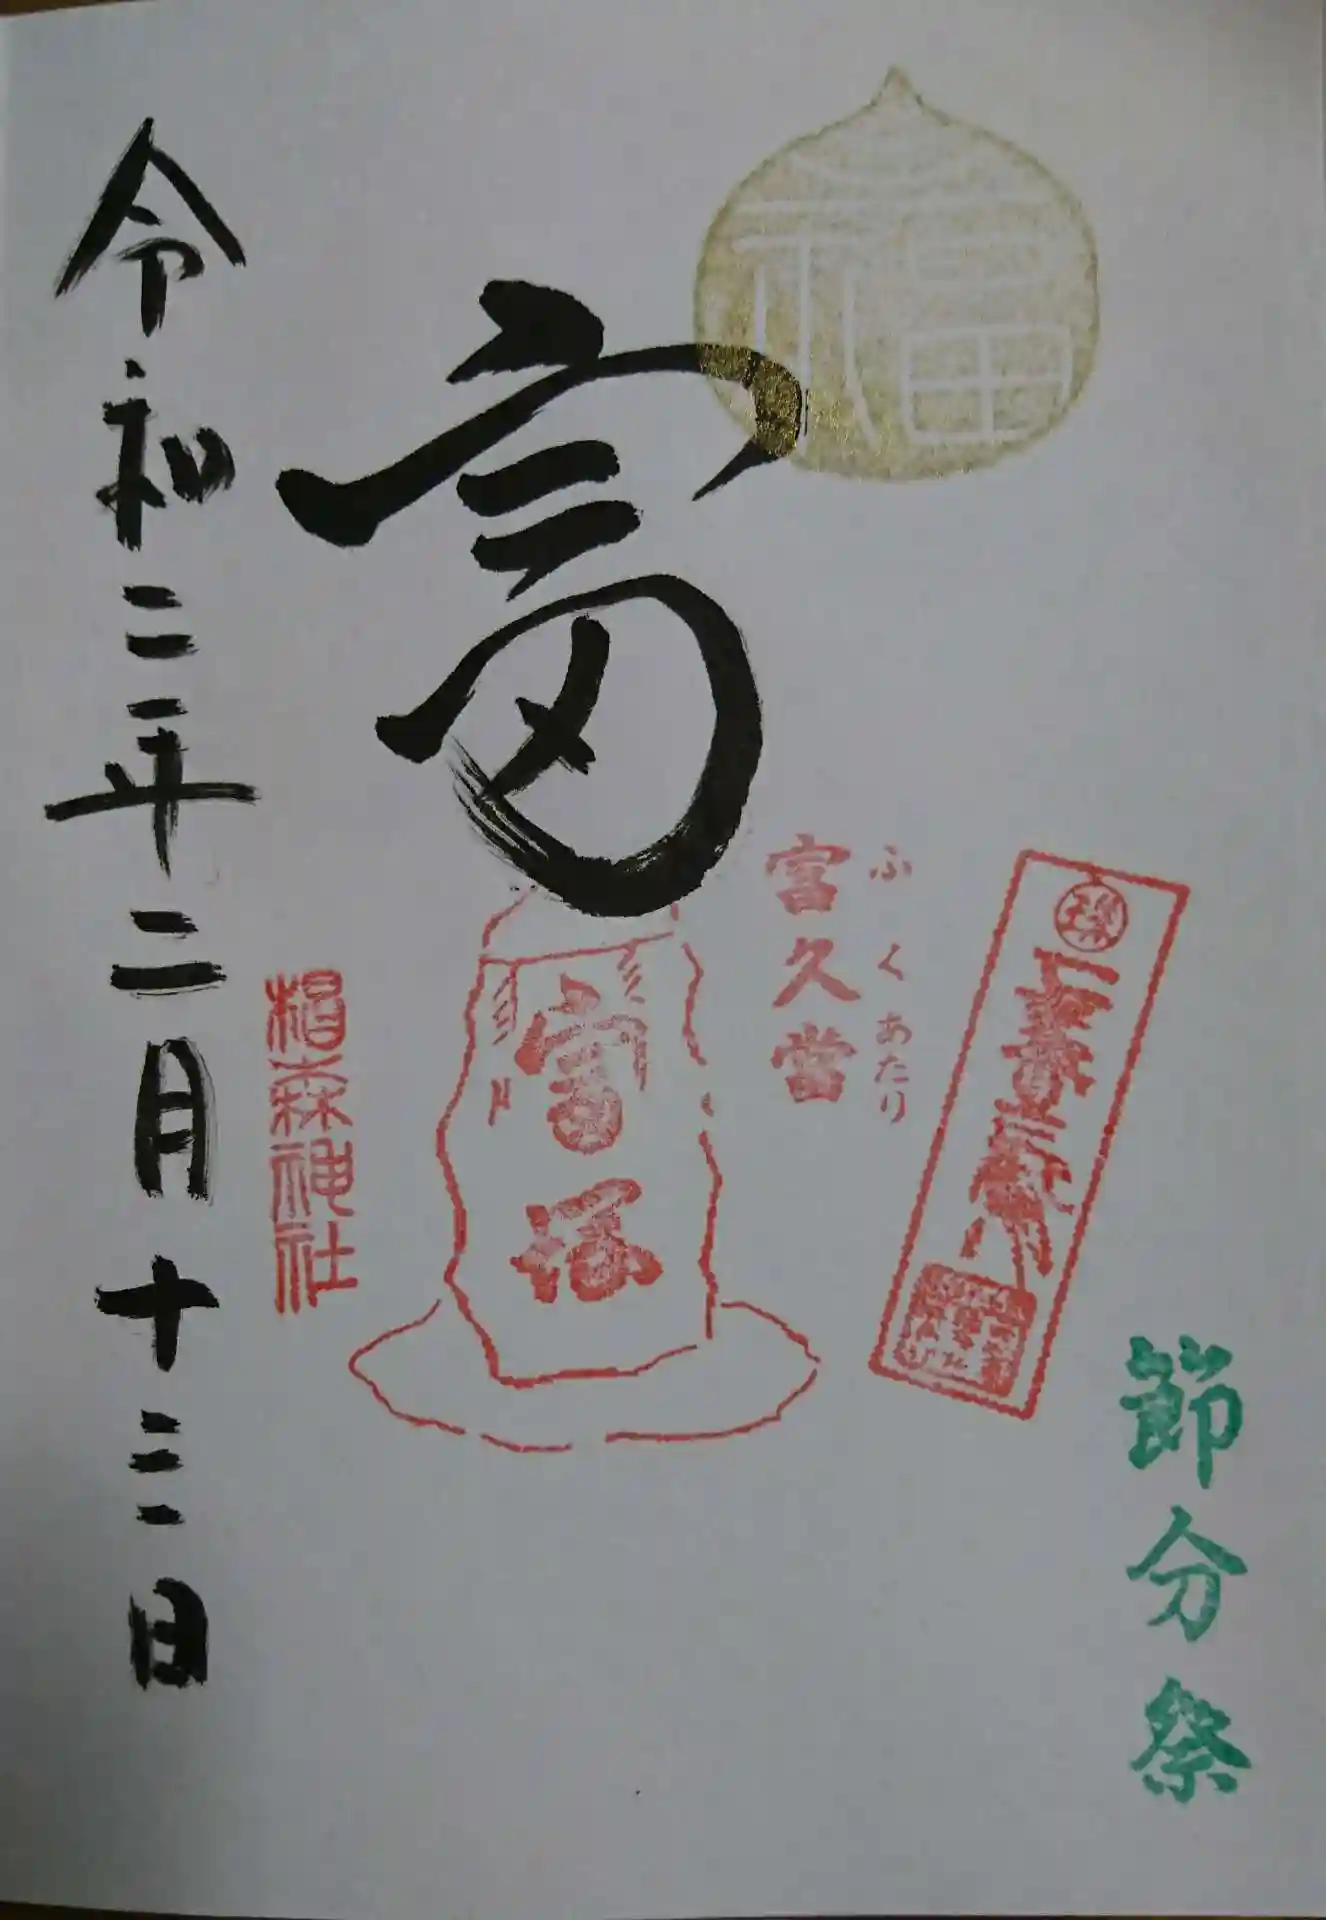 福
節分祭
ふくあたり
富久當
富
富塚
椙森神社
令和二年二月十三日